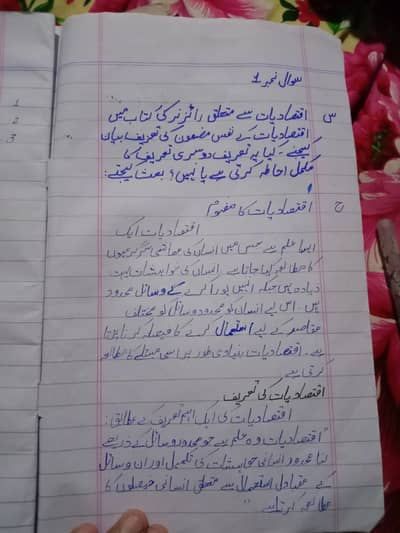 سوال نمبر 1
س اقتصادیات سے متعلق رائزنر کی کتاب میں
اقتصادیات کے نفس مضمون کی تعریف بیان
کیجئے۔ کیا یہ تعریف دوسری تعریف کا
مکمل احاطہ کرتی ہے یا نہیں؟ بحث کیجئے:
ج اقتصادیات کا مفہوم
اقتصادیات ایک
ایسا علم ہے جس میں انسان کی معاشی سرگرمیوں
کا مطالعہ کیا جاتا ہے۔ انسان کی خواہشات بہت
زیادہ ہیں جبکہ انہیں پورا کرنے کے وسائل محدود
ہیں۔ اس لیے انسان کو محدود وسائل کو مختلف
مقاصد کے لیے استعمال کرنے کا فیصلہ کرنا پڑتا
ہے۔ اقتصادیات بنیادی طور پر اسی مسئلے کا مطالعہ
کرتی ہے
اقتصادیات کی تعریف
اقتصادیات کی ایک اہم تعریف کے مطابق:
"اقتصادیات وہ علم ہے جو محدود وسائل کے ذریعے
لامحدود انسانی خواہشات کی تکمیل اور ان وسائل
کے متبادل استعمال سے متعلق انسانی فیصلوں کا
مطالعہ کرتا ہے"
1
2
3